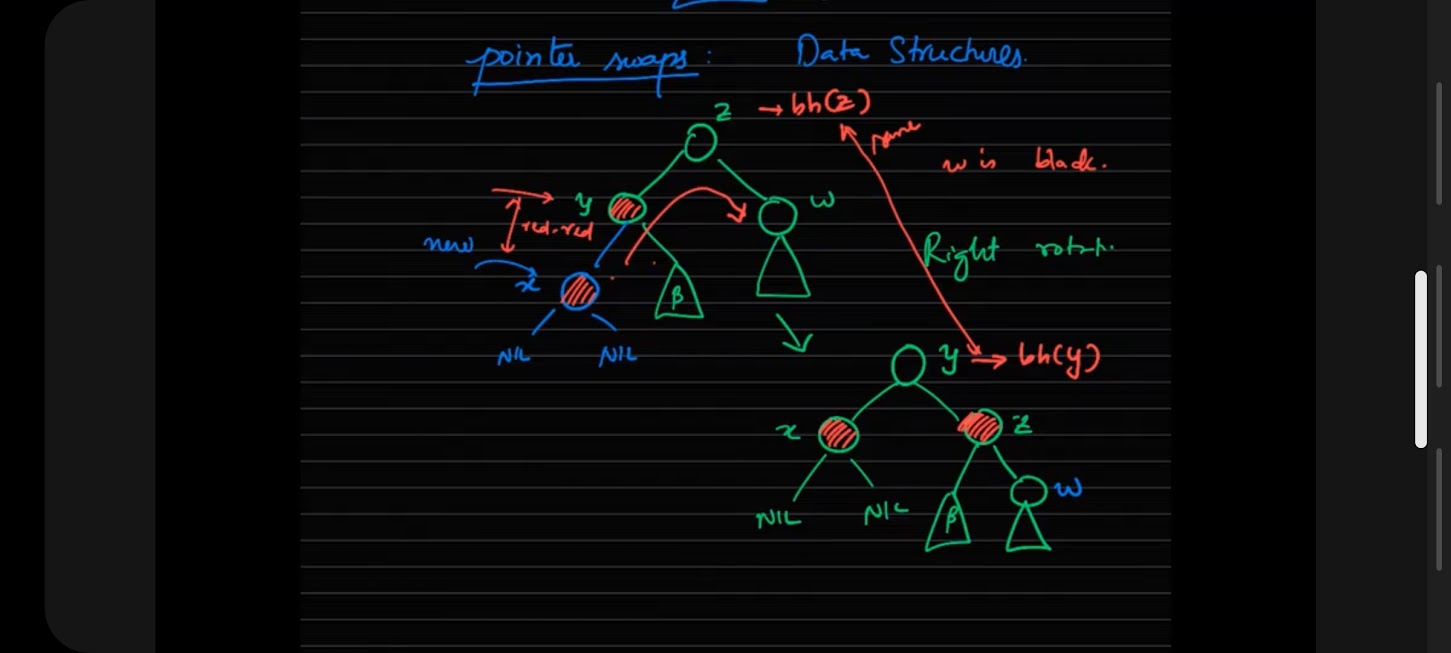 pointer swaps : Data Structures.
z → bh(z)
same
w is black.
y
w
red-red
new
Right rotat.
x
β
NIL NIL
y → bh(y)
x
z
w
NIL NIL β